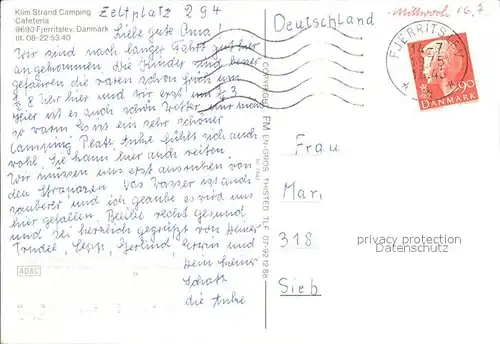 Klim Strand Camping
Cafeteria
9690 Fjerritslev, Danmark
tlf. 08-22 53 40
Zeltplatz 294
Liebe gute Oma!
Wir sind nach langer Fahrt gut hier
angekommen. Die Kinder sind besser
gefahren die waren schon früh um
8 Uhr hier und wir erst um 1/2 3
Hier ist es auch schön Wetter nur nicht
so warm. Es ist ein sehr schöner
Camping Platz. Antje fühlt sich auch
wohl. Sie kann hier auch reiten.
Wir müssen uns erst ausruhen von
den Strapazen. Das Wasser ist auch
sauberer und ich glaube es wird uns
hier gefallen. Bleibe recht gesund
und sei herzlich gegrüßt von Deiner
Trudel, Sepp, Gerlind, Erwin und
Dein kleiner
Schatz
die Antje
ADAC
Deutschland
Mittwoch 16.7
FJERRITSLEV
14-7
75
90
DANMARK
Frau
Mar.
318
Sieb
privacy protection
www.oldthing.de